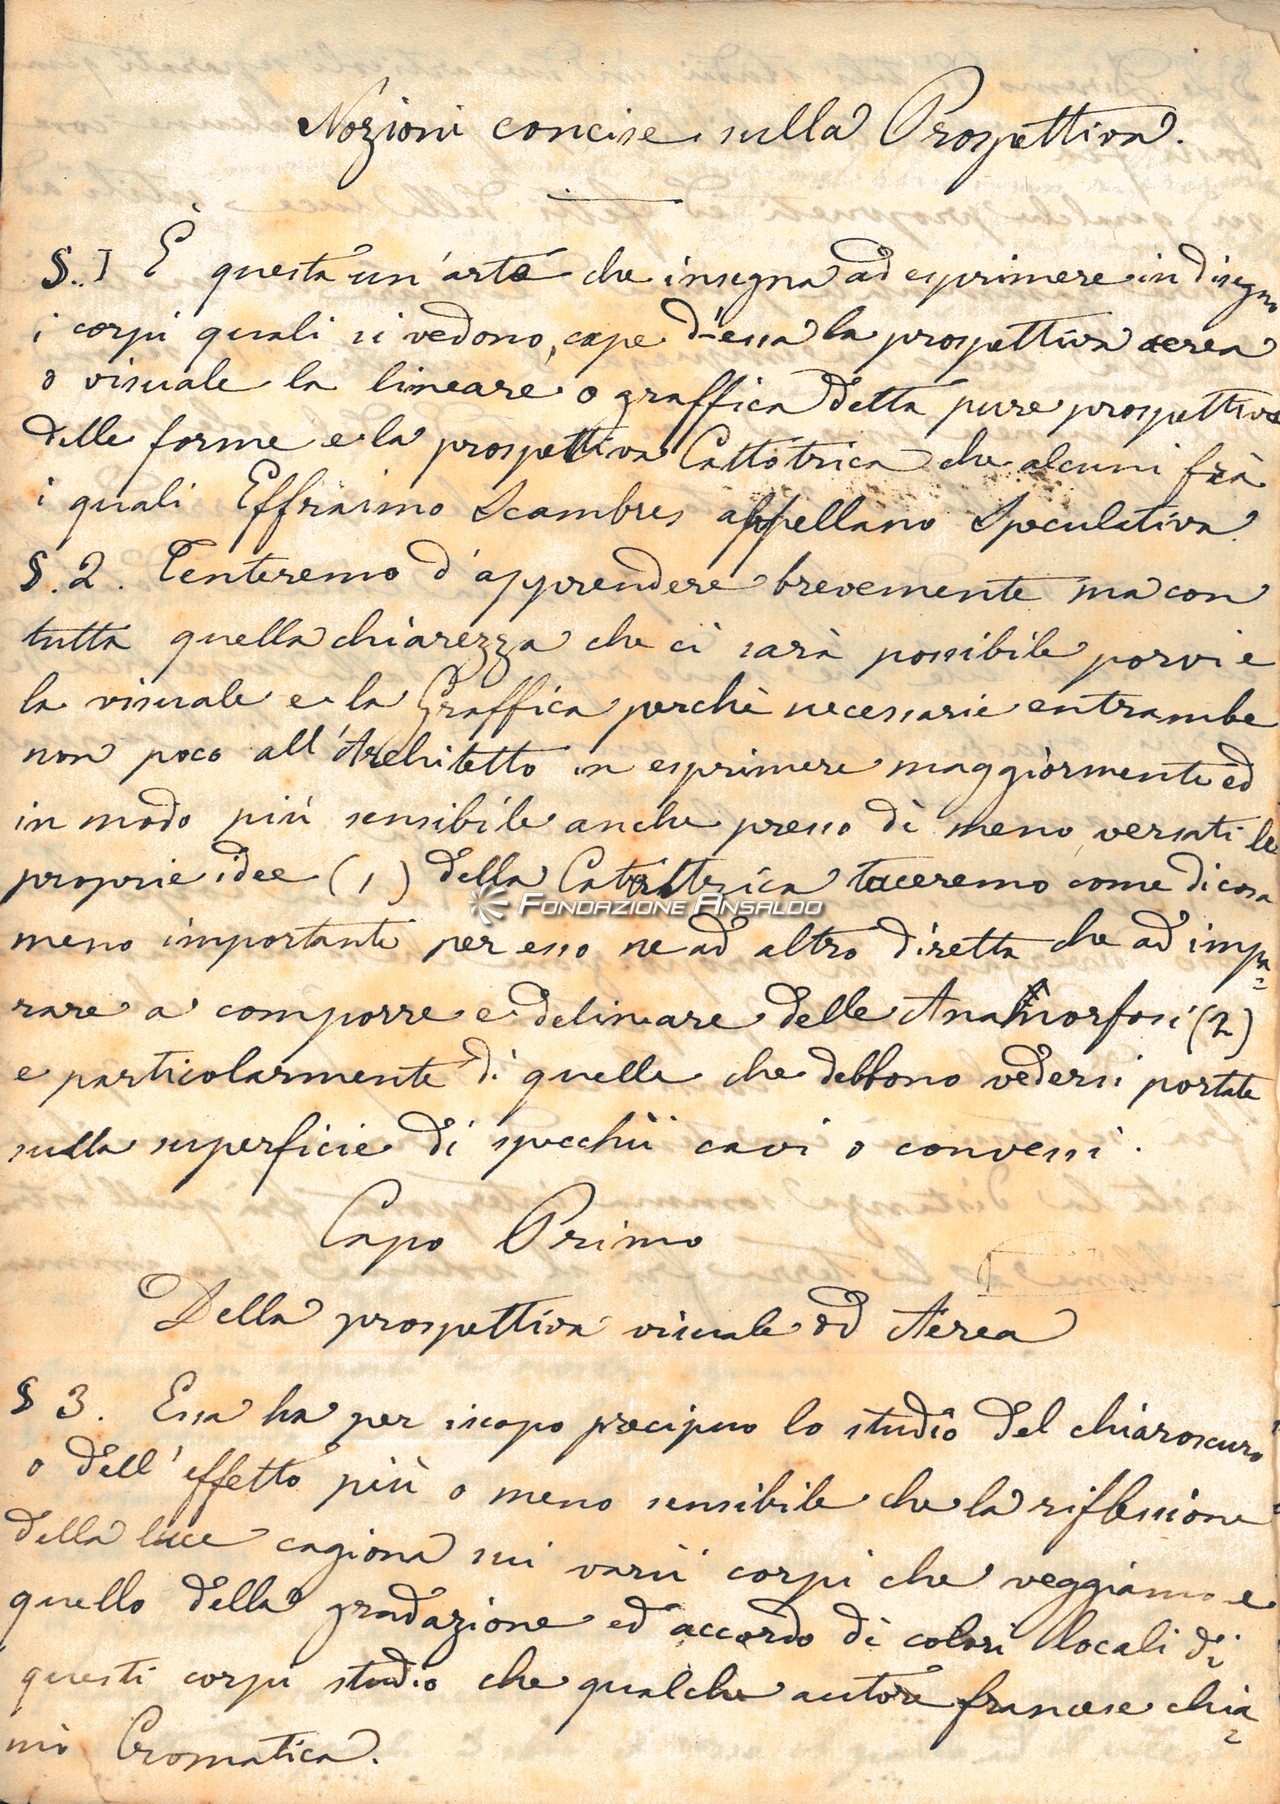 Nozioni concise sulla Prospettiva.
§. I È questa un'arte che insegna ad esprimere in disegno
i corpi quali si vedono, d'essa la prospettiva aerea
o visuale la lineare o graffica detta pure prospettiva
delle forme e la prospettiva Cattotrica che alcuni frà
i quali Effraimo Scambres appellano Speculativa.
§. 2. Tenteremo d'apprendere brevemente ma con
tutta quella chiarezza che ci sarà possibile porvi e
la visuale e la Graffica perchè necessarie entrambe
non poco all'Architetto in esprimere maggiormente ed
in modo più sensibile anche presso di meno versati le
proprie idee (1) della taceremo come di cosa
FONDAZIONE ANSALDO
meno importante per esso ne ad altro diretta che ad impa=
rare a comporre e delineare delle Anamorfosi (2)
e particolarmente di quelle che debbono vedersi portate
sulla superficie di specchii cavi o convessi.
Capo Primo
Della prospettiva visuale od Aerea
§ 3. Essa ha per iscopo precipuo lo studio del chiaroscuro
o dell'effetto più o meno sensibile che la riflessione
della luce cagiona sui varii corpi che veggiamo e
quello della gradazione ed accordo di colori locali di
questi corpi studio che qualche autore francese chia=
mò Cromatica.